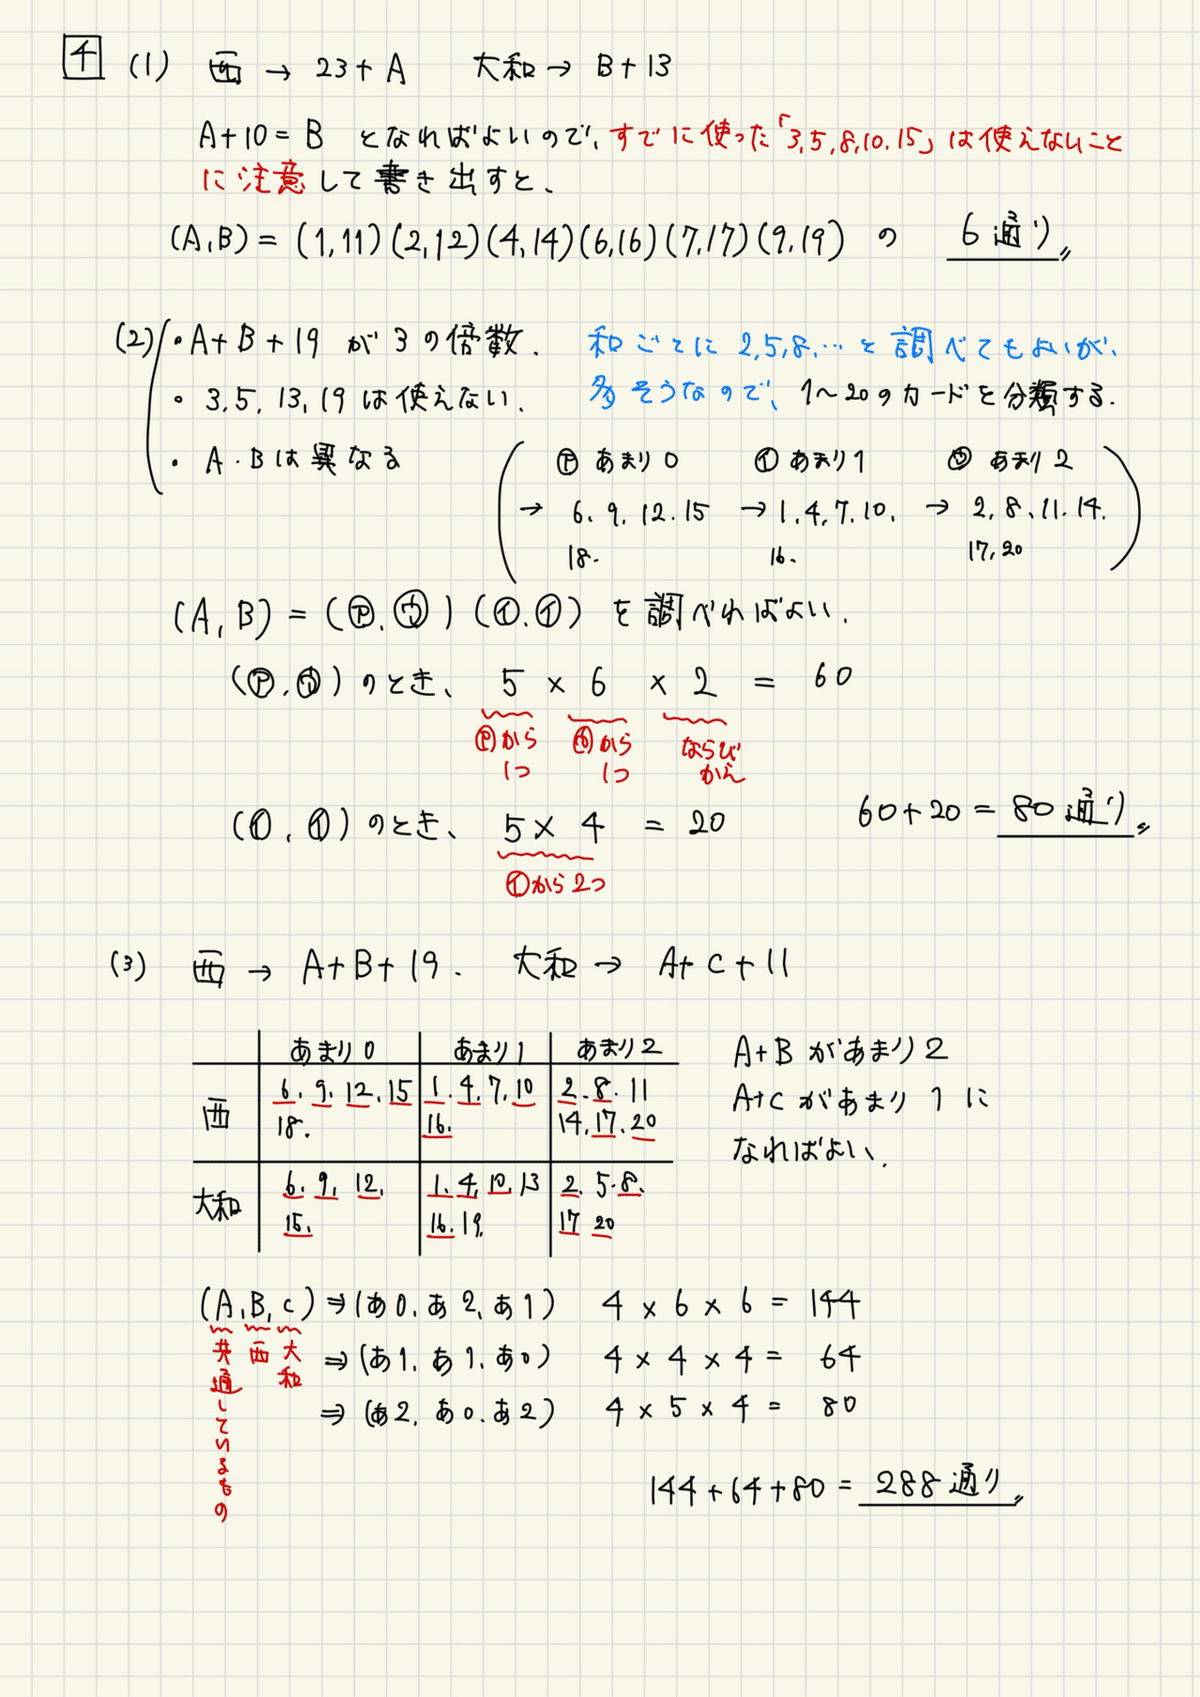 4 (1) 西 → 23+A 大和 → B+13
A+10=B となればよいので、すでに使った「3,5,8,10,15」は使えないこと
に注意して書き出すと、
(A,B) = (1,11)(2,12)(4,14)(6,16)(7,17)(9,19) の 6通り
(2) ・A+B+19 が 3の倍数. 和ごとに 2,5,8,…と調べてもよいが、
・3,5,13,19 は使えない. 多そうなので、1〜20のカードを分類する.
・A・Bは異なる
㋐ あまり0 ㋑ あまり1 ㋒ あまり2
→ 6、9、12、15 → 1、4、7、10、 → 2、8、11、14.
18. 16. 17,20
(A,B) = (㋐,㋒) (㋑,㋑) を調べればよい.
(㋐,㋒) のとき、 5 × 6 × 2 = 60
㋐から ㋒から ならび
1つ 1つ かえ
(㋑,㋑) のとき、 5 × 4 = 20 60+20 = 80通り
㋑から2つ
(3) 西 → A+B+19. 大和 → A+C+11
あまり0 あまり1 あまり2
西 6、9、12、15 1、4、7、10 2、8、11
18. 16. 14、17、20
大和 6、9、12、 1、4、10、13 2、5、8、
15. 16、19. 17 20
A+B があまり2
A+C があまり1に
なればよい.
(A,B,C) ⇒ (あ0、あ2、あ1) 4 × 6 × 6 = 144
⇒ (あ1、あ1、あ0) 4 × 4 × 4 = 64
⇒ (あ2、あ0、あ2) 4 × 5 × 4 = 80
共通しているもの
西
大和
144+64+80 = 288通り